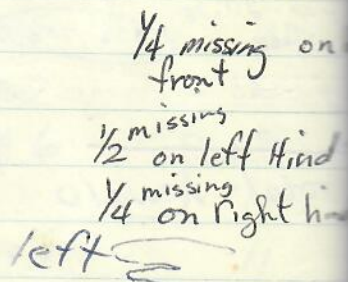 1/4 missing on
front
1/2 missing on left Hind
1/4 missing on right hi
left